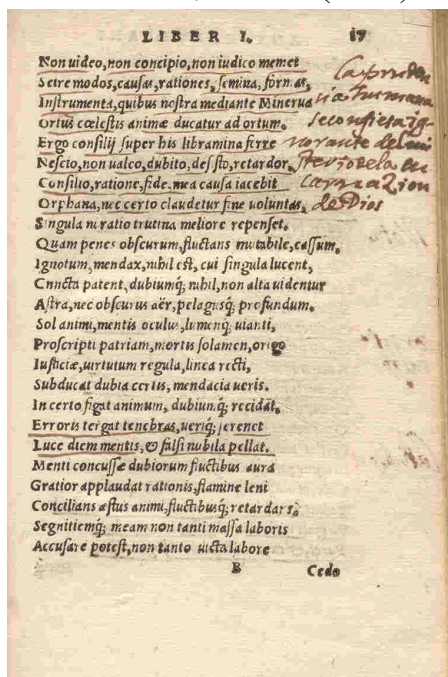 LIBER I. 17
Non uideo, non concipio, non iudico memet
Scire modos, causas, rationes, semina, formas,
Instrumenta, quibus nostra mediante Minerua
Ortus cœlestis animæ ducatur ad ortum.
Ergo consilij super his libramina ferre
Nescio, non ualeo, dubito, desisto, retardor.
Consilio, ratione, fide, mea causa iacebit
Orphana, nec certo claudetur fine uoluntas,
Singula ni ratio trutina meliore repenset.
Quam penes obscurum, fluctans mutabile, cassum,
Ignotum, mendax, nihil est, cui singula lucent,
Cuncta patent, dubiumq; nihil, non alta uidentur
Astra, nec obscurus aër, pelagusq; profundum.
Sol animi, mentis oculus, lumenq; uianti,
Proscripti patriam, mortis solamen, origo
Iusticiæ, uirtutum regula, linea recti,
Subducat dubia certis, mendacia ueris.
In certo figat animum, dubiumq; recidat,
Erroris tergat tenebras, ueriq; serenet
Luce diem mentis, & falsi nubila pellat.
Menti concussæ dubiorum fluctibus aura
Gratior applaudat rationis, flamine leni
Concilians æstus animi, fluctibusq; retardans.
Segnitiemq; meam non tanti massa laboris
Accusare potest, non tanto uicta labore
B Cedo
La pruden
cia humana
se confiesa ig
norante del mi
sterio de la en
carnaZion
de Dios